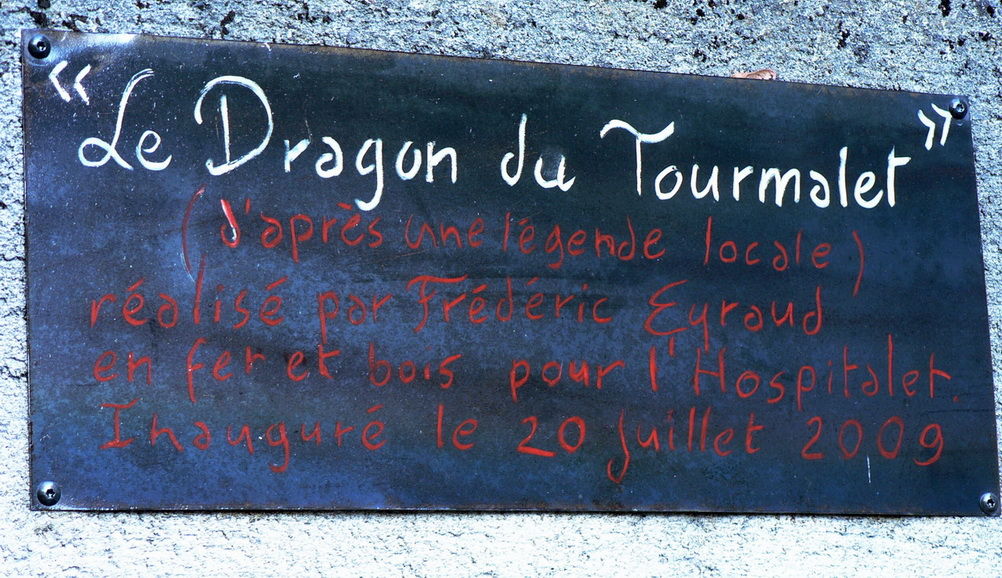 « Le Dragon du Tourmalet »
(d'après une légende locale)
réalisé par Frédéric Eyraud
en fer et bois pour l'Hospitalet.
Inauguré le 20 Juillet 2009